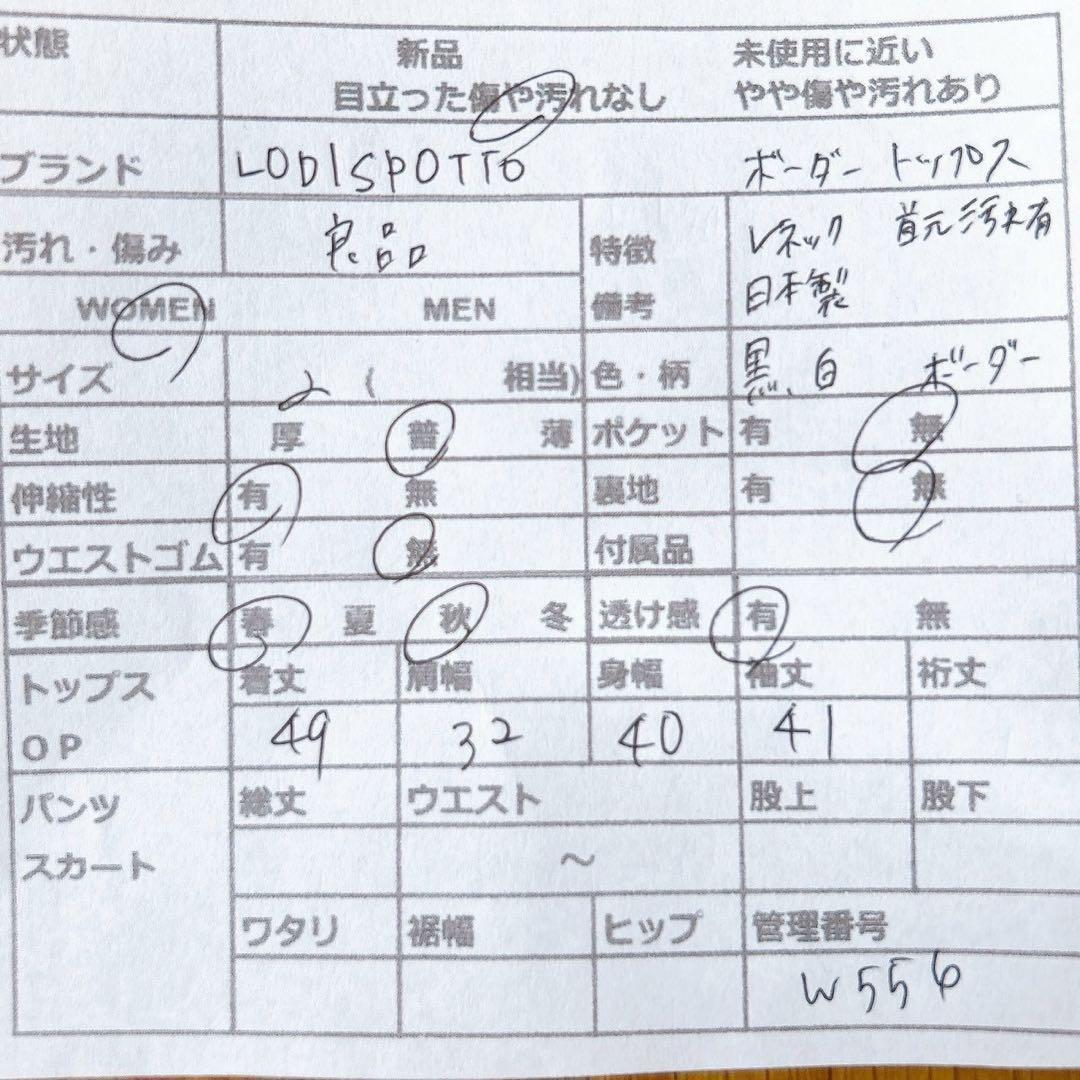 状態 新品 未使用に近い
目立った傷や汚れなし やや傷や汚れあり
ブランド LODISPOTTO ボーダー トップス
汚れ・傷み 良品 特徴 Vネック 首元汚れ有
備考 日本製
WOMEN MEN
サイズ 2 ( 相当) 色・柄 黒、白 ボーダー
生地 厚 普 薄 ポケット 有 無
伸縮性 有 無 裏地 有 無
ウエストゴム 有 無 付属品
季節感 春 夏 秋 冬 透け感 有 無
トップス 着丈 肩幅 身幅 袖丈 裄丈
OP 49 32 40 41
パンツ 総丈 ウエスト 股上 股下
スカート 〜
ワタリ 裾幅 ヒップ 管理番号
W556